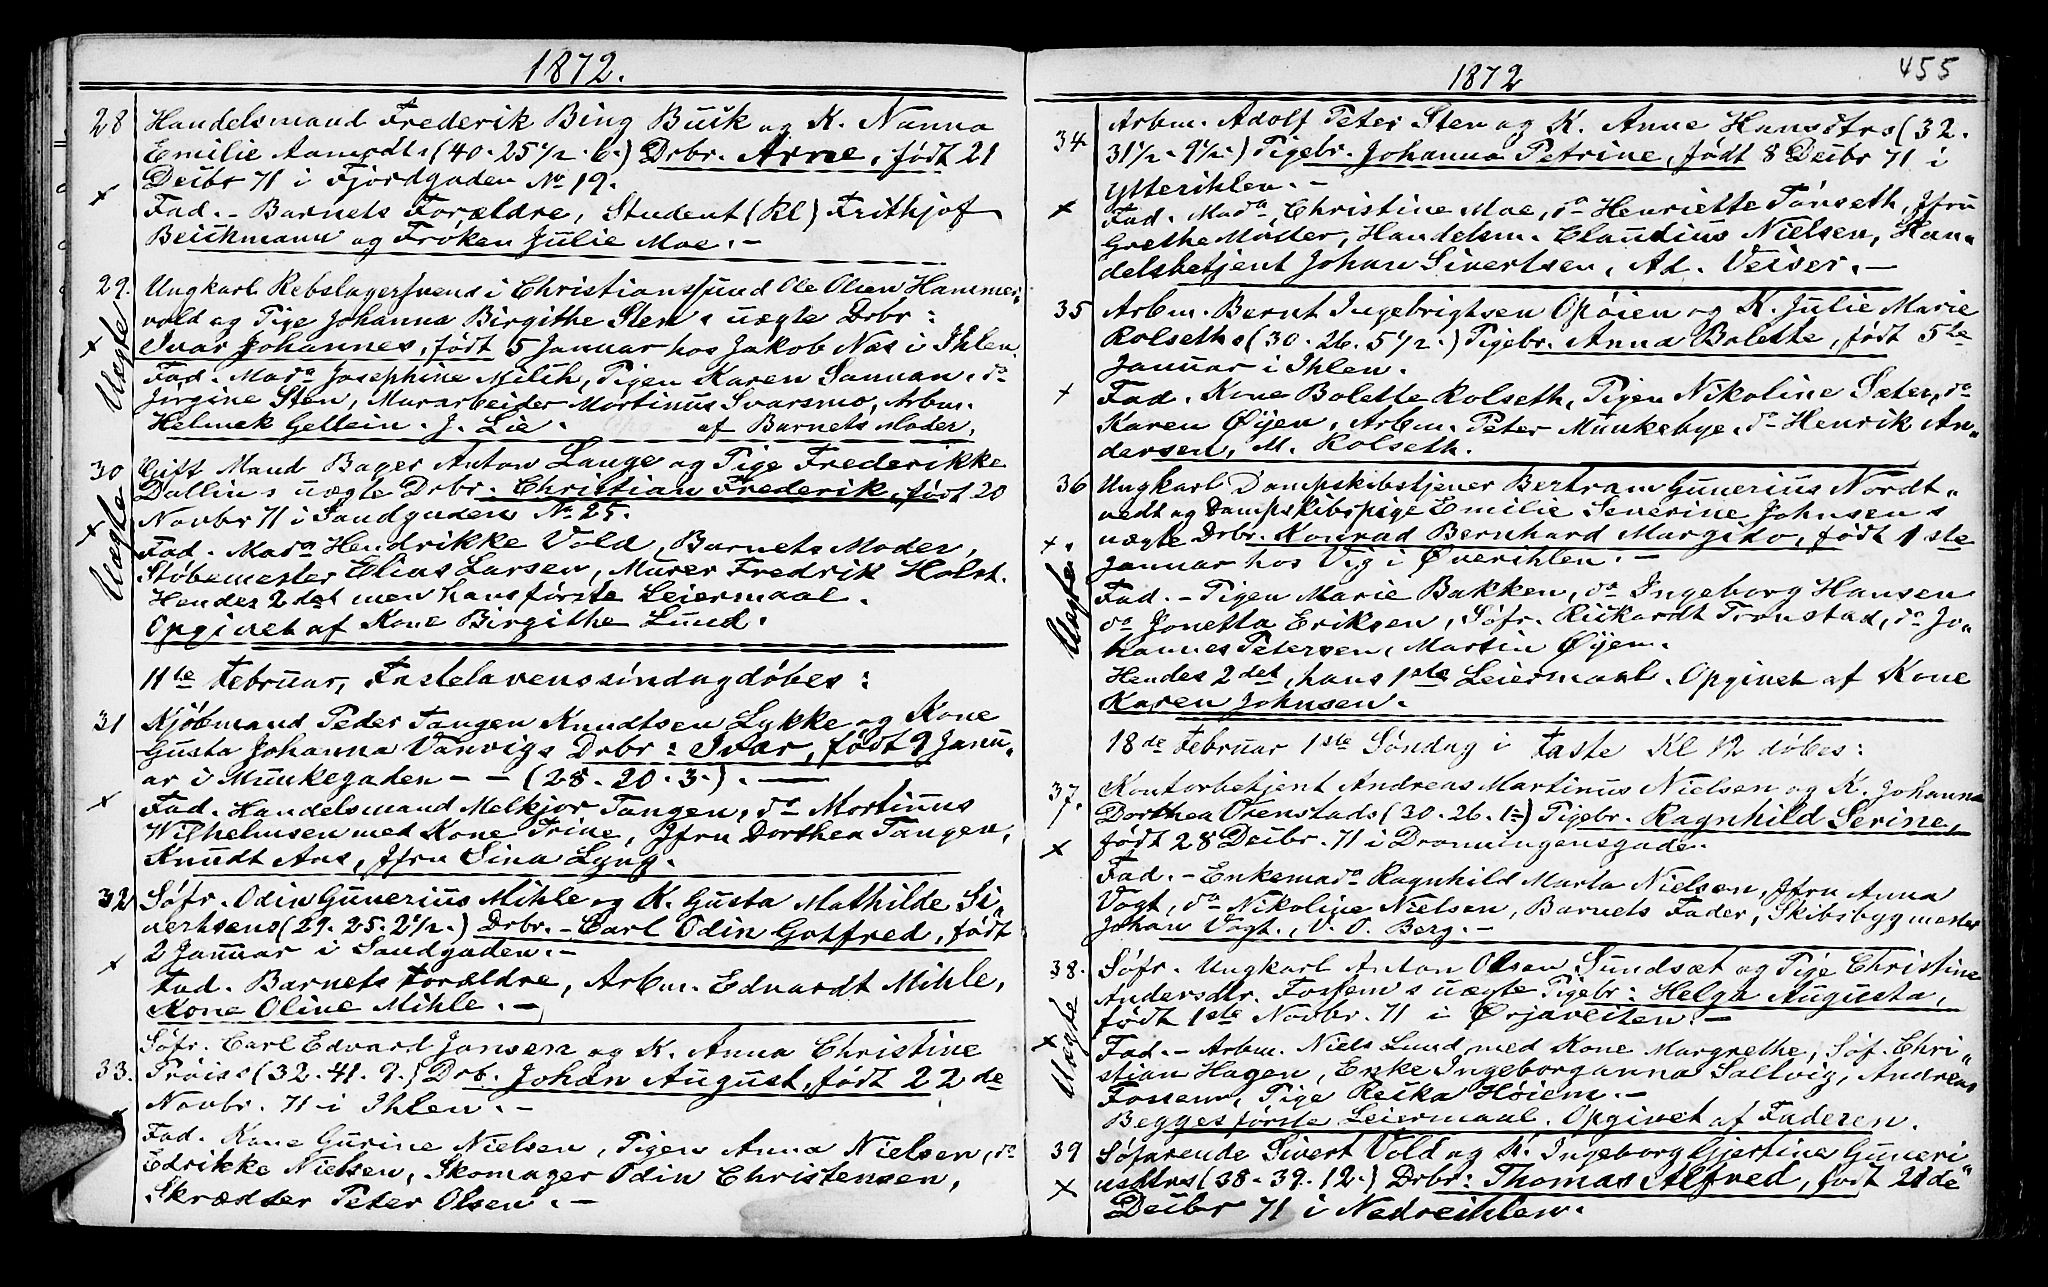 1872.
28 Handelsmand Frederik Bing Buck og K. Nanna
Emilie Aamodts (40. 25 1/2. 6.) Drbr. Arne, født 21
Decbr 71 i Fjordgaden No 19.
x
Fad. - Barnets Forældre, Student (Kl) Frithjof
Beichmann og Frøken Julie Moe. -
29. Ungkarl Rebslagersvend i Christianssund Ole Olsen Hammer-
vold og Pige Johanna Birgithe Sten s uægte Drbr:
Ivar Johannes, født 5 Januar hos Jakob Næs i Ihlen.
x Uægte
Fad. Mada Josephine Milih, Pigen Karen Sannan, do
Jørgine Sten, Murarbeider Mortinus Svarsmo, Arbm.
Helmek Gellein. J. Lie. af Barnets Moder.
30 Gift Mand Bager Anton Lange og Pige Frederikke
Dallin s uægte Drbr. Christian Frederik, født 20
Novbr 71 i Sandgaden No 25.
x Uægte
Fad. Mada Hendrikke Vold, Barnets Moder,
Støbemester Elias Larsen, Murer Fredrik Holst.
Hendes 2det men hans første Leiermaal.
Opgivet af Kone Birgithe Lund.
11te Februar, Fastelavenssøndag døbes:
31 Kjøbmand Peder Tangen Knudtsen Lykke og Kone
Gusta Johanna Vanvigs Drbr: Ivar, født 9 Janu-
ar i Munkegaden - - (28. 20. 3.). -
x
Fad. Handelsmand Melkjor Tangen, do Mortinus
Wilhelmsen med Kone Trine, Jfru Dorthea Tangen,
Knudt Aas, Jfru Sina Lyng.
32 Søfr. Odin Gunerius Mihle og K. Gusta Mathilde Si-
vertsens (29. 25. 2 1/2.) Drbr. - Carl Odin Gotfred, født
2 Januar i Sandgaden. -
x
Fad. Barnets Forældre, Arbm. Edvardt Mihle,
Kone Oline Mihle. -
33. Søfr. Carl Edvard Jansen og K. Anna Christine
Prøiss (32. 41. 9.) Drb. Johan August, født 22de
Novbr. 71 i Ihlen. -
x
Fad. Kone Gurine Nielsen, Pigen Anna Nielsen, do
Edrikke Nielsen, Skomager Odin Christensen,
Skrædder Peter Olsen. -
1872
455
34 Arbm. Adolf Peter Sten og K. Anne Hansdtrs (32.
31 1/2. 9 1/2.) Pigebr. Johanna Petrine, født 8 Decbr 71 i
Ytterihlen. -
x
Fad. Mada Christine Moe, do Henriette Tønseth, Jfru
Grethe Møller, Handelsm. Claudius Nielsen, Han-
delsbetjent Johan Sivertsen, Ad. Veiser. -
35 Arbm. Bernt Ingebrigtsen Opøien og K. Julie Marie
Rolseths (30. 26. 5 1/2.) Pigebr. Anna Bolette, født 5te
Januar i Ihlen.
x
Fad. Kone Bolette Rolseth, Pigen Nikoline Sæter, do
Karen Øyen, Arbm. Peter Munkebye, do Henrik An-
dersen, M. Rolseth.
36 Ungkarl Dampskibstjener Bertram Gunerius Nordt-
vedt og Dampskibspige Emilie Severine Johnsen s
uægte Drbr. Konrad Bernhard Margido, født 1ste
x. Uægte
Januar hos Vig i Øverihlen. -
Fad. - Pigen Marie Bakken, do Ingeborg Hansen
do Jonetta Eriksen, Søfr. Rickardt Tronstad, do Jo-
hannes Petersen, Martin Øyen.
Hendes 2det, hans 1ste Leiermaal. Opgivet af Kone
Karen Johnsen.
18de Februar 1ste Søndag i Faste Kl 12 døbes:
37. Kontorbetjent Andreas Martinus Nielsen og K. Johanna
Dorthea Orenstads (30. 26. 1-) Pigebr. Ragnhild Serine,
født 28 Decbr. 71 i Dronningensgade.
x
Fad. - Enkemada Ragnhild Marta Nielsen, Jfru Anna
Vogt, do Nikoline Nielsen, Barnets Fader, Skibsbygmester
Johan Vogt, V. O. Berg. -
38. Søfr. Ungkarl Anton Olsen Sundsæt og Pige Christine
Andersdtr. Fossem s uægte Pigebr: Helga Augusta,
født 1ste Novbr. 71 i Ørjaveiten. -
x Uægte
Fad. - Arbm. Niels Lund med Kone Margrethe, Søf. Chri-
stian Hagen, Enke Ingeborganna Sallvig, Andreas
Fossem, Pige Reika Høiem. -
Begges første Leiermaal. Opgivet af Faderen.
39 Søfarende Sivert Vold og K. Ingeborg Gjertine Guneri-
usdtrs (38. 39. 12.) Drbr: Thomas Alfred, født 21de
x
Decbr 71 i Nedreihlen.